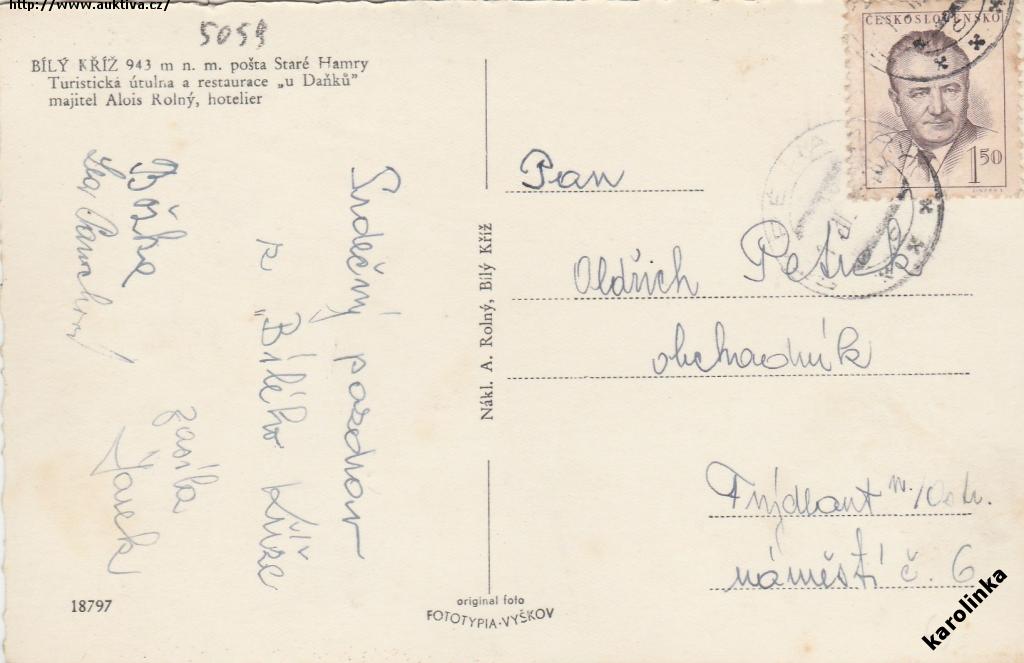 http://www.auktiva.cz/
5059
BÍLÝ KŘÍŽ 943 m n. m. pošta Staré Hamry
Turistická útulna a restaurace „u Daňků"
majitel Alois Rolný, hotelier
Srdečný pozdrav
z
„Bílého Kříže
zasílá
Jarek
Božka
18797
Nákl. A. Rolný, Bílý Kříž
original foto
FOTOTYPIA-VYŠKOV
ČESKOSLOVENSKO
1 50
Pan
Oldřich Petřek
obchodník
Frýdlant n./Ostr.
náměstí č. 6
karolinka